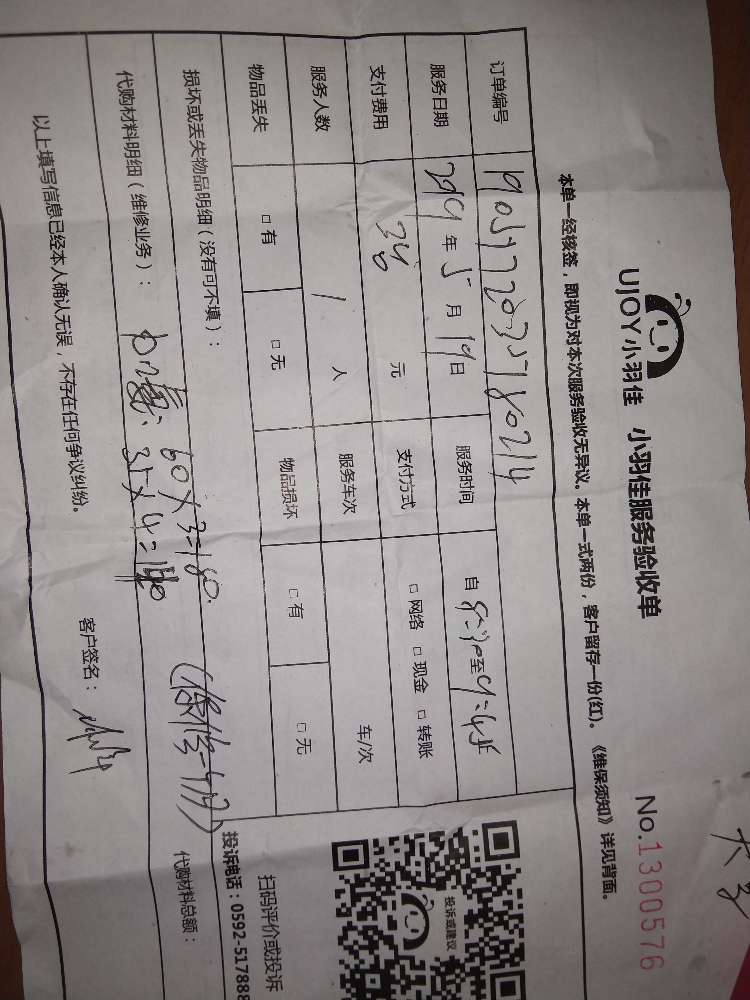 UJOY小羽佳 小羽佳服务验收单 No.1300576
本单一经核签，即视为对本次服务验收无异议。本单一式两份，客户留存一份(红)。《维保须知》详见背面。
订单编号
服务日期 2019年5月19日 服务时间 自 至
支付费用 元 支付方式 □ 网络 □ 现金 □ 转账
服务人数 1 人 服务车次 车/次
物品丢失 □ 有 □ 无 物品损坏 □ 有 □ 无
损坏或丢失物品明细（没有可不填）：
代购材料明细（维修业务）： 60×3=180.
35×4=140
代购材料总额：
以上填写信息已经本人确认无误，不存在任何争议纠纷。
客户签名：
投诉或建议
扫码评价或投诉
投诉电话：0592-517888